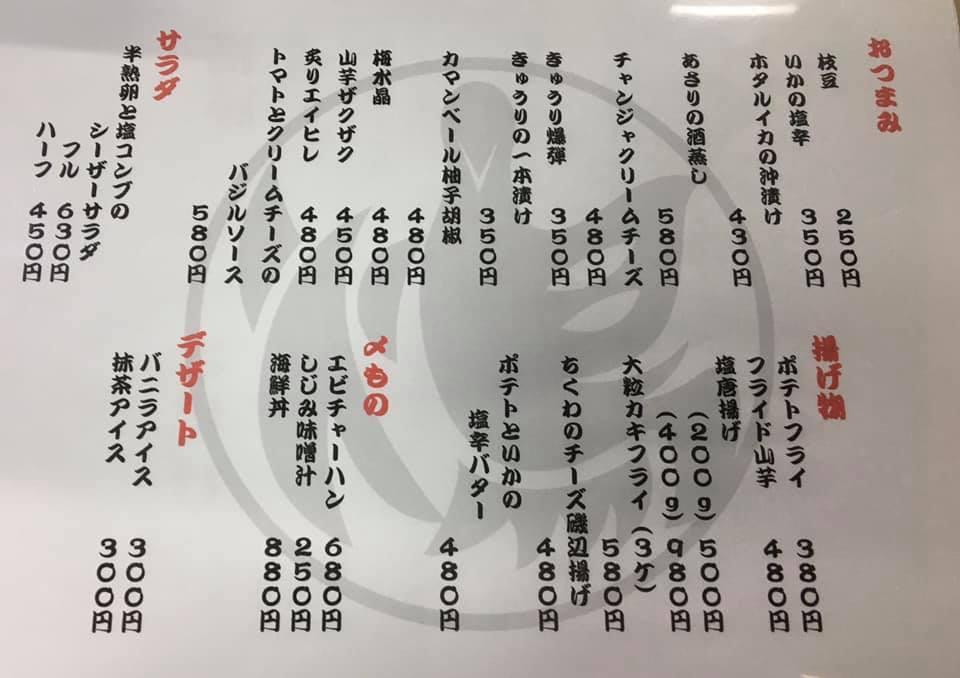 おつまみ
枝豆 250円
いかの塩辛 350円
ホタルイカの沖漬け 430円
あさりの酒蒸し 580円
チャンジャクリームチーズ 480円
きゅうり爆弾 350円
きゅうりの一本漬け 350円
カマンベール柚子胡椒 480円
梅水晶 480円
山芋ザクザク 450円
炙りエイヒレ 480円
トマトとクリームチーズの
バジルソース 580円
サラダ
半熟卵と塩コンブの
シーザーサラダ
フル 630円
ハーフ 450円
揚げ物
ポテトフライ 380円
フライド山芋 480円
塩唐揚げ
(200g) 500円
(400g) 980円
大粒カキフライ(3ケ) 580円
ちくわのチーズ磯辺揚げ 480円
ポテトといかの
塩辛バター 480円
〆もの
エビチャーハン 680円
しじみ味噌汁 250円
海鮮丼 880円
デザート
バニラアイス 300円
抹茶アイス 300円